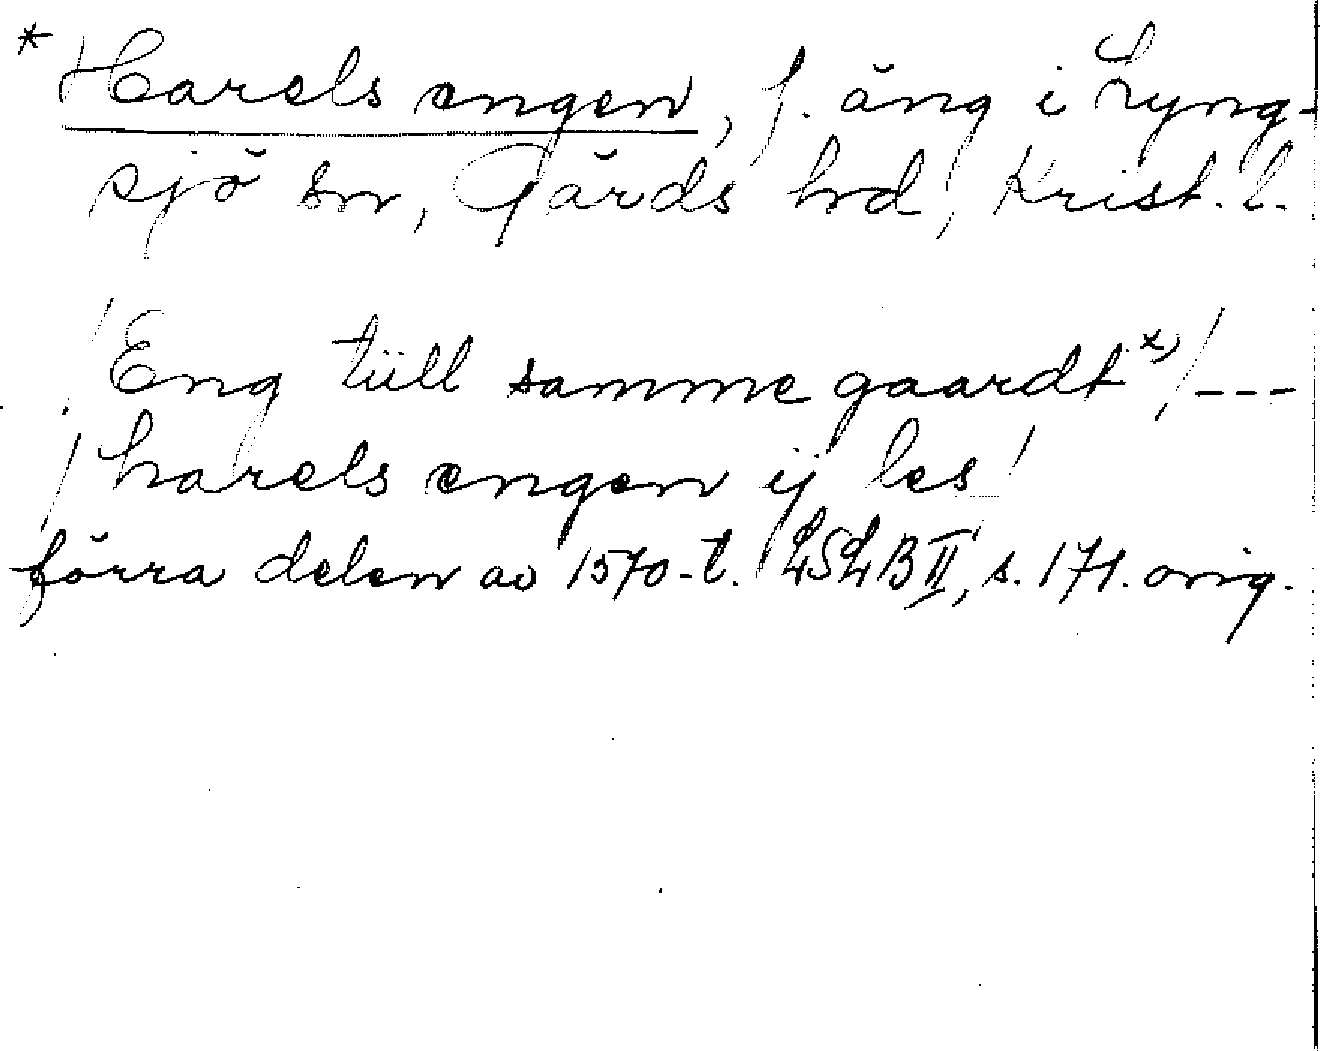 * Harels engen, f. äng i Lyng-
sjö sn, Gärds hd, Krist. l.
/Eng tüll samme gaardt x)/---
/harels engen ij les/
förra delen av 1570-t. LSLB II, s. 171. orig.